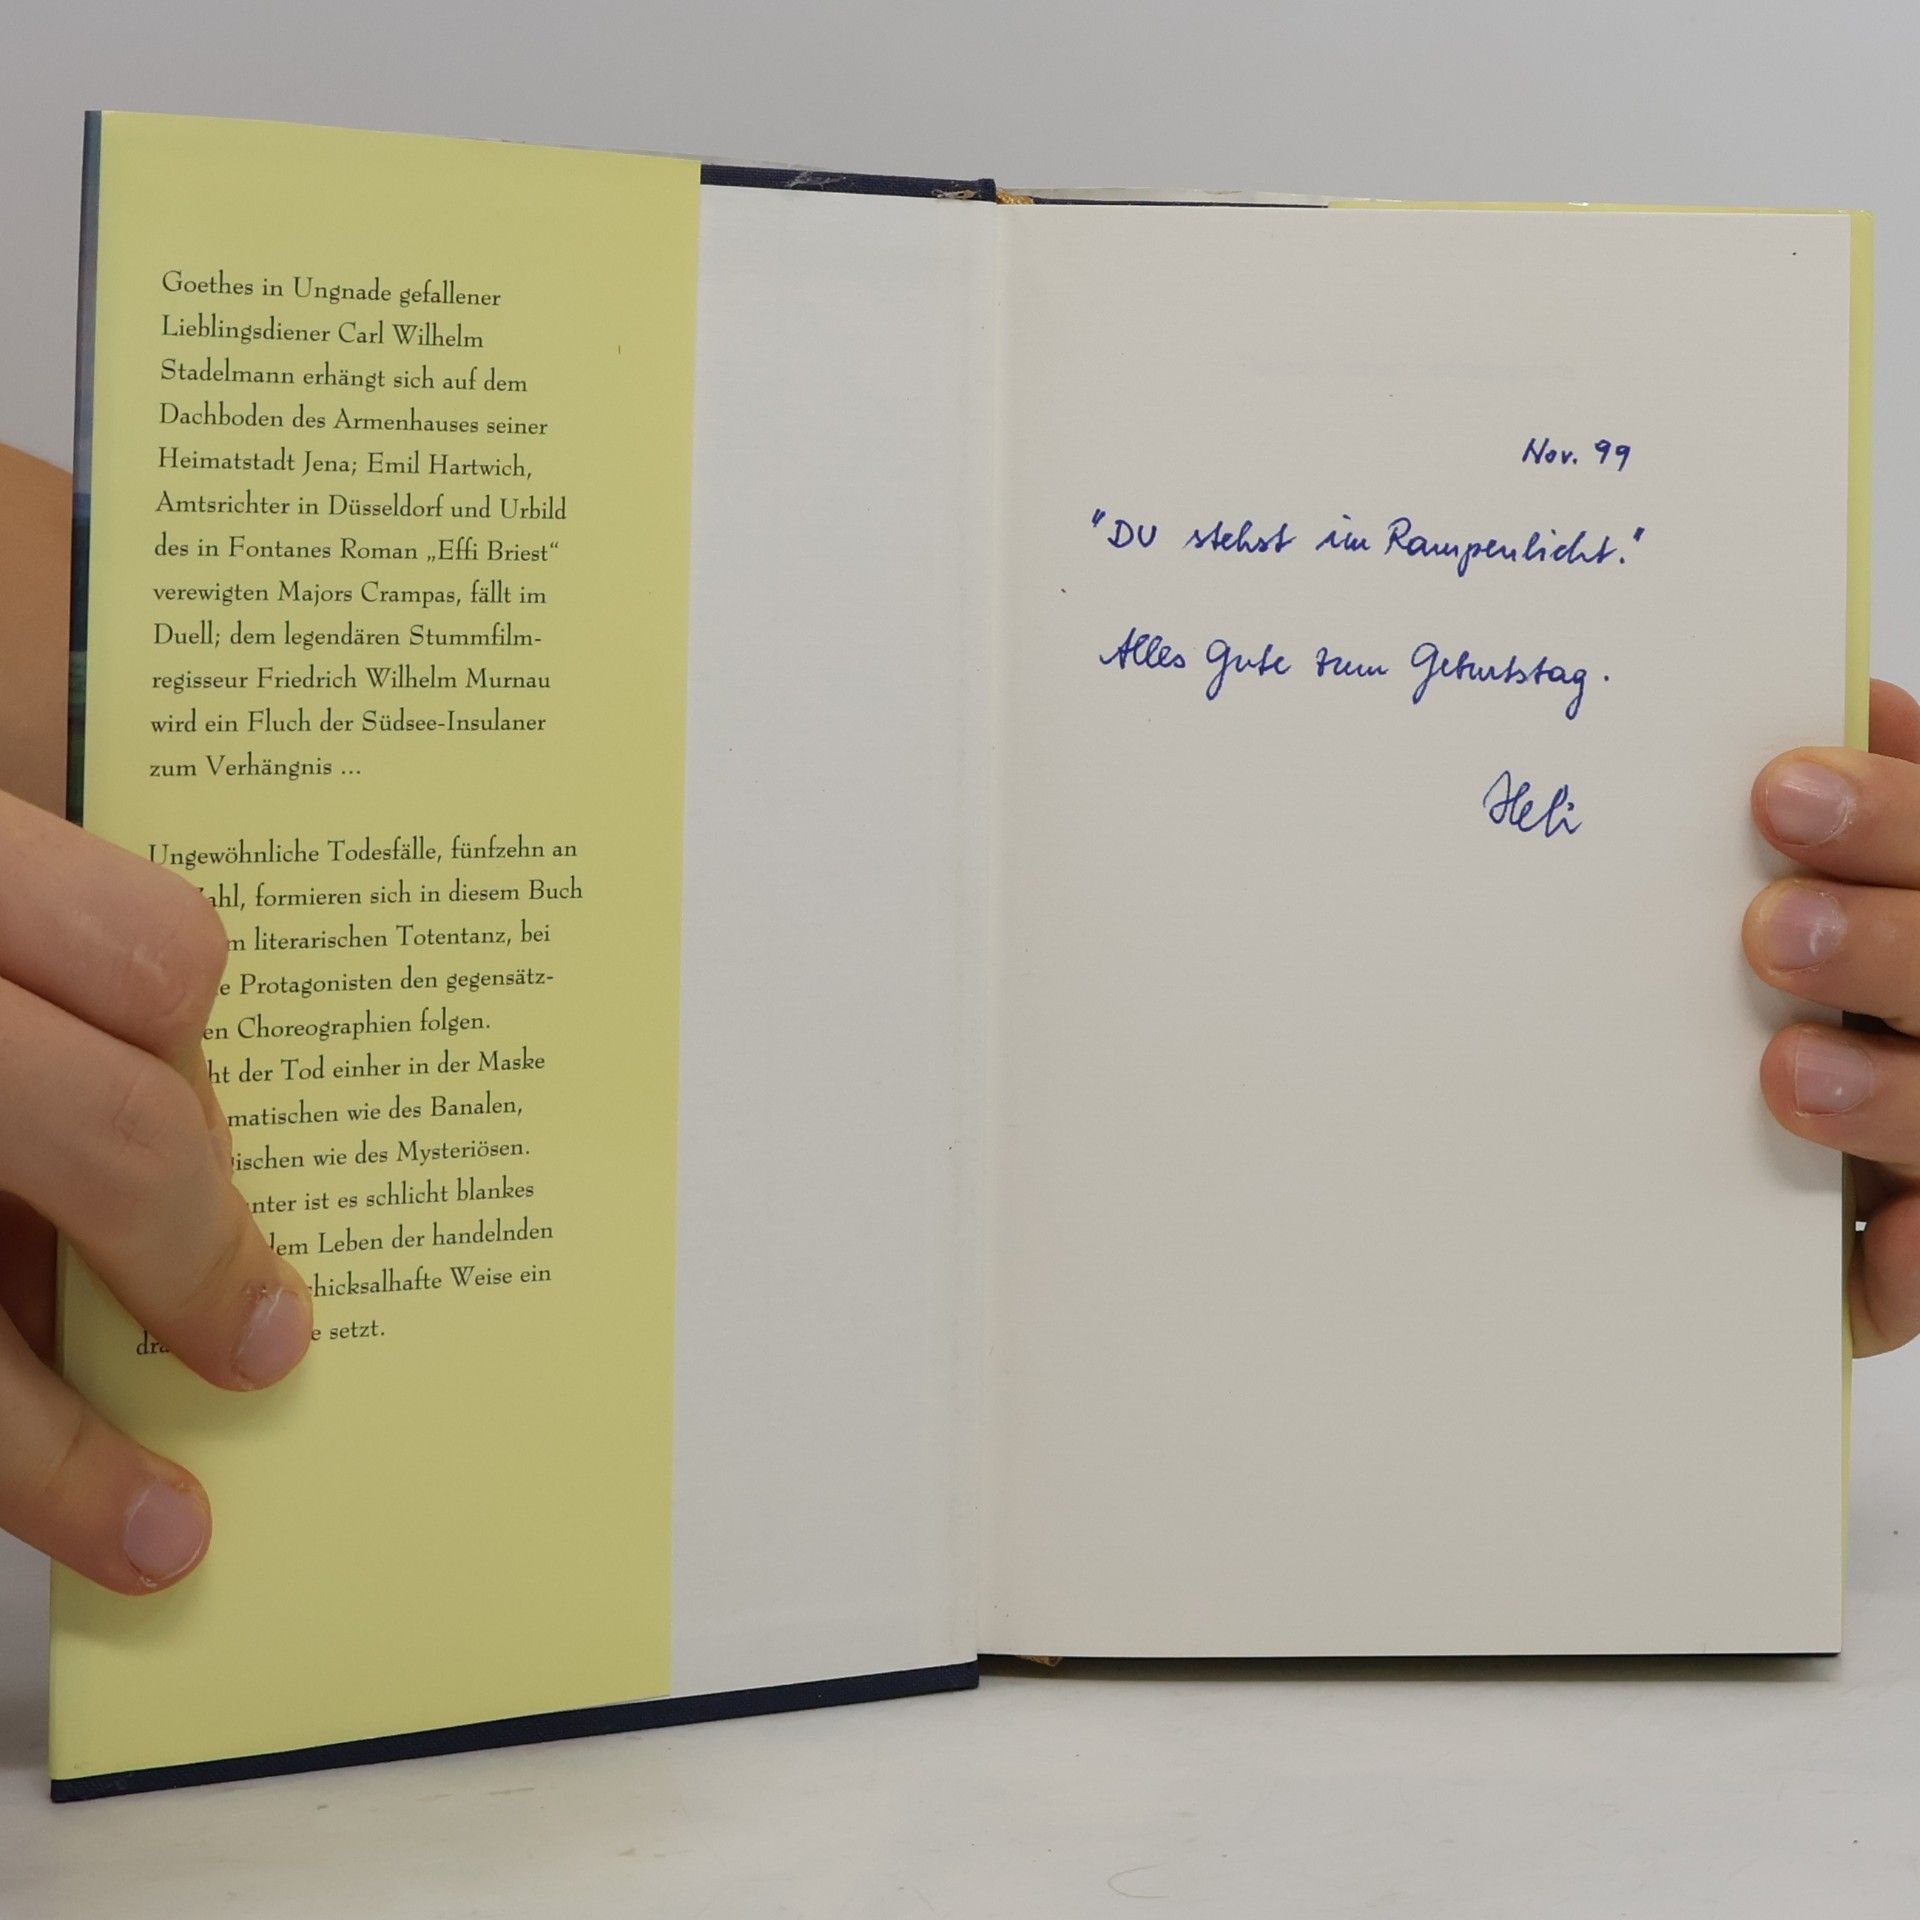 Goethes in Ungnade gefallener
Lieblingsdiener Carl Wilhelm
Stadelmann erhängt sich auf dem
Dachboden des Armenhauses seiner
Heimatstadt Jena; Emil Hartwich,
Amtsrichter in Düsseldorf und Urbild
des in Fontanes Roman „Effi Briest“
verewigten Majors Crampas, fällt im
Duell; dem legendären Stummfilm-
regisseur Friedrich Wilhelm Murnau
wird ein Fluch der Südsee-Insulaner
zum Verhängnis ...
Ungewöhnliche Todesfälle, fünfzehn an
formieren sich in diesem Buch
literarischen Totentanz, bei
Protagonisten den gegensätz-
Choreographien folgen.
der Tod einher in der Maske
wie des Banalen,
wie des Mysteriösen.
ist es schlicht blankes
Leben der handelnden
Weise ein
setzt.
Nov. 99
"DU stehst im Rampenlicht."
Alles Gute zum Geburtstag.